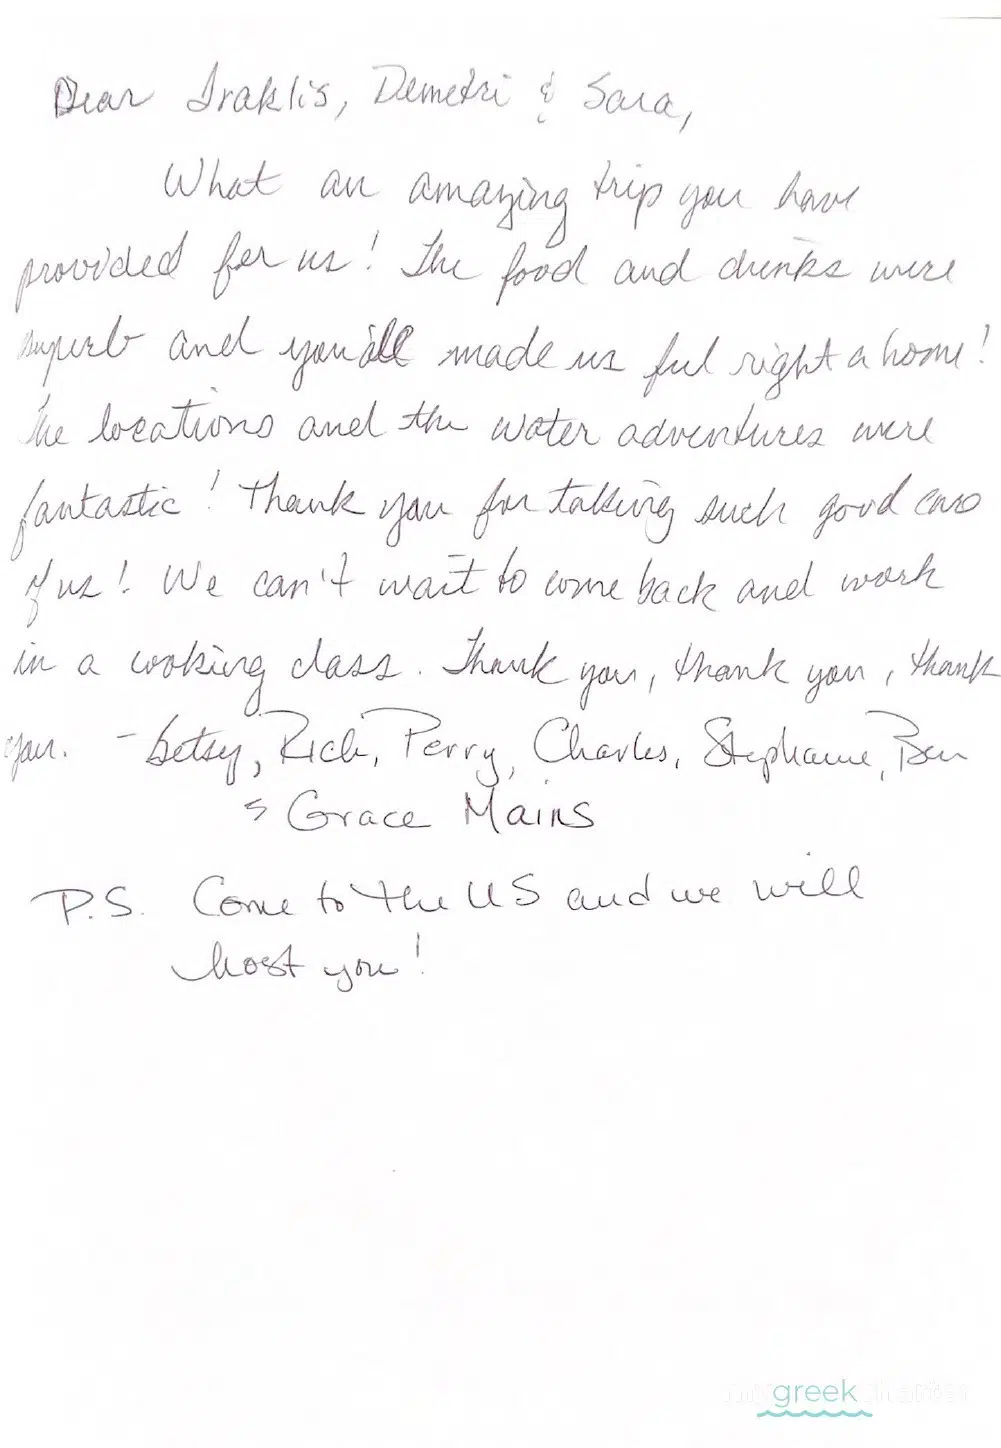 Dear Iraklis, Demetri & Sara,
What an amazing trip you have
provided for us! The food and drinks were
superb and you all made us feel right a home!
The locations and the water adventures were
fantastic! Thank you for taking such good care
of us! We can't wait to come back and work
in a cooking class. Thank you, thank you, thank
you. - Betsy, Rich, Perry, Charles, Stephanie, Ben
& Grace Mains
P.S. Come to the US and we will
host you!
my greek charter